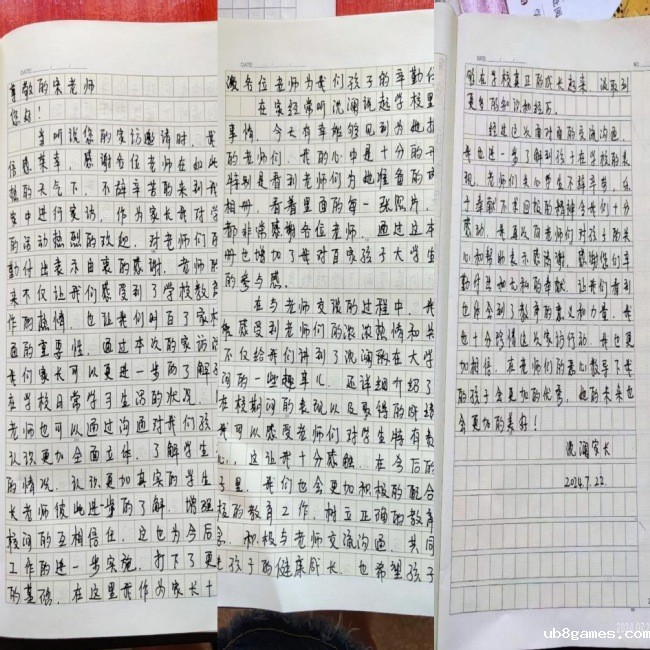 DATE:
尊敬的宋老师
您好！
当听说您的家访邀请时，我
倍感荣幸，感谢各位老师在如此
热的天气下，不辞辛苦的来到我
家中进行家访，作为家长我对学
的活动热烈的欢迎，对老师们的
勤付出表示由衷的感谢，老师的
来不仅让我们感受到了学校教育
作的热情，也让我们明白了家校
面的重要性，通过本次的家访活
我们家长可以更进一步的了解孩
在学校日常学习生活的状况，
老师也可以通过沟通对我们孩
认识更加全面立体，了解学生
的情况，认识更加真实的学生
长老师彼此进一步的了解，增强
校间的互相信任，这也为今后
工作的进一步实施，打下了更
的基础，在这里我作为家长十
DATE
激各位老师为我们孩子的辛勤付
在家经常听沈澜说起学校里
事情，今天有幸能够见到为她指
的老师们，我的心中是十分的开
特别是看到老师们为她准备的成
相册，看着里面的每一张照片，
都非常感谢各位老师，通过这本
册也增加了我对自家孩子大学生
的参与感。
在与老师交谈的过程中，我
感受到老师们的浓浓热情和关
不仅给我们讲到了沈澜在大学
间的一些趣事儿，还详细介绍了
在校期间的表现以及取得的成绩
我可以感受老师们对学生特有责
心，这让我十分感触，在今后的
子里，我们也会更加积极的配合
校的教育工作，树立正确的教育
念，积极与老师交流沟通，共同
孩子的健康成长，也希望孩子
DATE
NO
能在学校真正的成长起来，汲取到
更多的知识和经历。
经过这次面对面的交流沟通，
我也进一步了解到孩子在学校的表
现，老师们关心学生不辞辛苦，乐
于奉献不求回报的精神令我们十分
感动，我再次向老师们对孩子的关
心和帮助表示感谢，感谢您们辛
勤付出和无私的奉献，让我们看到
也体会到了教育的意义和力量，我
也十分珍惜这次家访行动，我也更
加相信，在老师们的悉心教导下我
的孩子会更加的优秀，她的未来也
会更加的美好！
沈澜家长
2024.7.22
ub8games.com